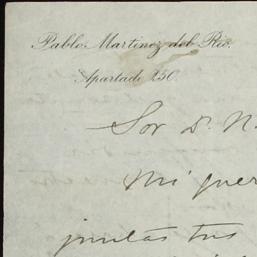 Pablo Martinez del Rio.
Apartado 250.
Sor D. N.
Mi quer
juntas tus